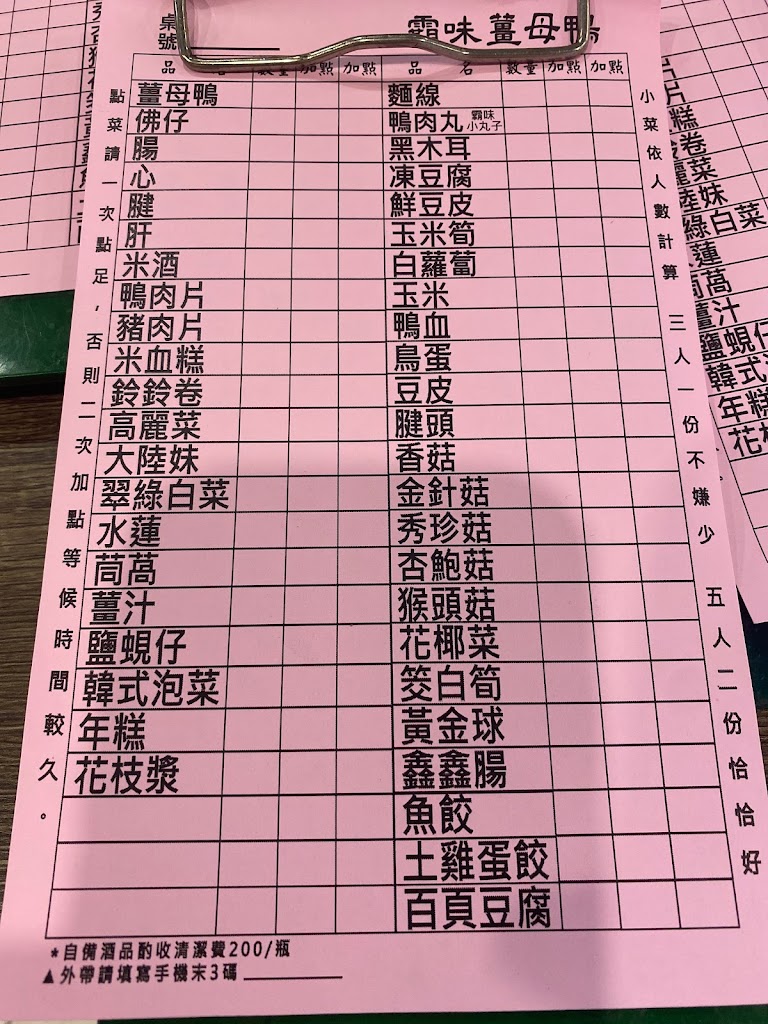 桌號
霸味薑母鴨
品 名 數量 加點 加點 品 名 數量 加點 加點
薑母鴨 麵線
佛仔 鴨肉丸 霸味小丸子
腸 黑木耳
心 凍豆腐
腱 鮮豆皮
肝 玉米筍
米酒 白蘿蔔
鴨肉片 玉米
豬肉片 鴨血
米血糕 鳥蛋
鈴鈴卷 豆皮
高麗菜 腱頭
大陸妹 香菇
翠綠白菜 金針菇
水蓮 秀珍菇
茼萵 杏鮑菇
薑汁 猴頭菇
鹽蜆仔 花椰菜
韓式泡菜 筊白筍
年糕 黃金球
花枝漿 鑫鑫腸
魚餃
土雞蛋餃
百頁豆腐
點菜請一次點足，否則二次加點等候時間較久。
小菜依人數計算 三人一份不嫌少 五人二份恰恰好
*自備酒品酌收清潔費200/瓶
▲外帶請填寫手機末3碼